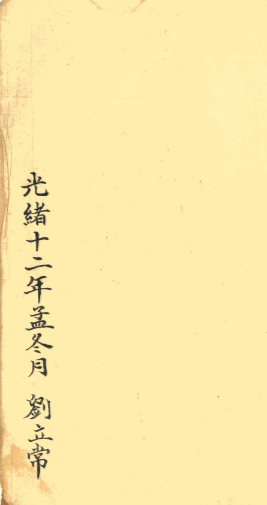 光緒十二年孟冬月 劉立常